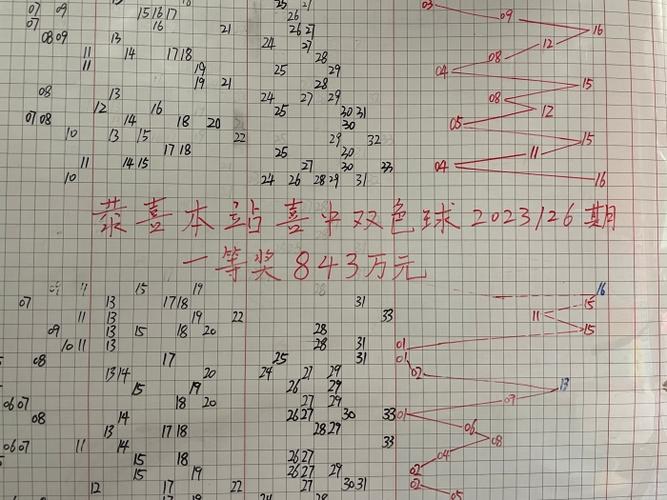 07 09 15 16 17 25 27 03
07 16 21 26 09
08 09 13 26 27 16
11 14 17 18 24 27 12
11 28 08
19 25 29 04
19 21 28 15
08 13 24 27 29 08
12 16 25 30 31 12
07 08 14 18 20 30 05
10 13 15 22 29 32 15
17 18 25 30 11
11 14 15 27 30 33 04
10 24 26 28 29 31 16
恭喜本站喜中双色球2023126期
一等奖843万元
15 19 16
07 13 17 18 31 15
11 13 19 22 33 11
09 13 15 18 20 28 15
10 11 13 28 31 01
08 17 25 31 01
13 14 20 24 27 29 02
15 19 26 29 13
06 07 18 20 27 29 09
08 14 26 27 30 33 01
13 17 18 28 29 06
06 07 11 14 33 08
15 18 26 27 04
15 19 26 27 29 02
12 17 22 27 30 31 02
05